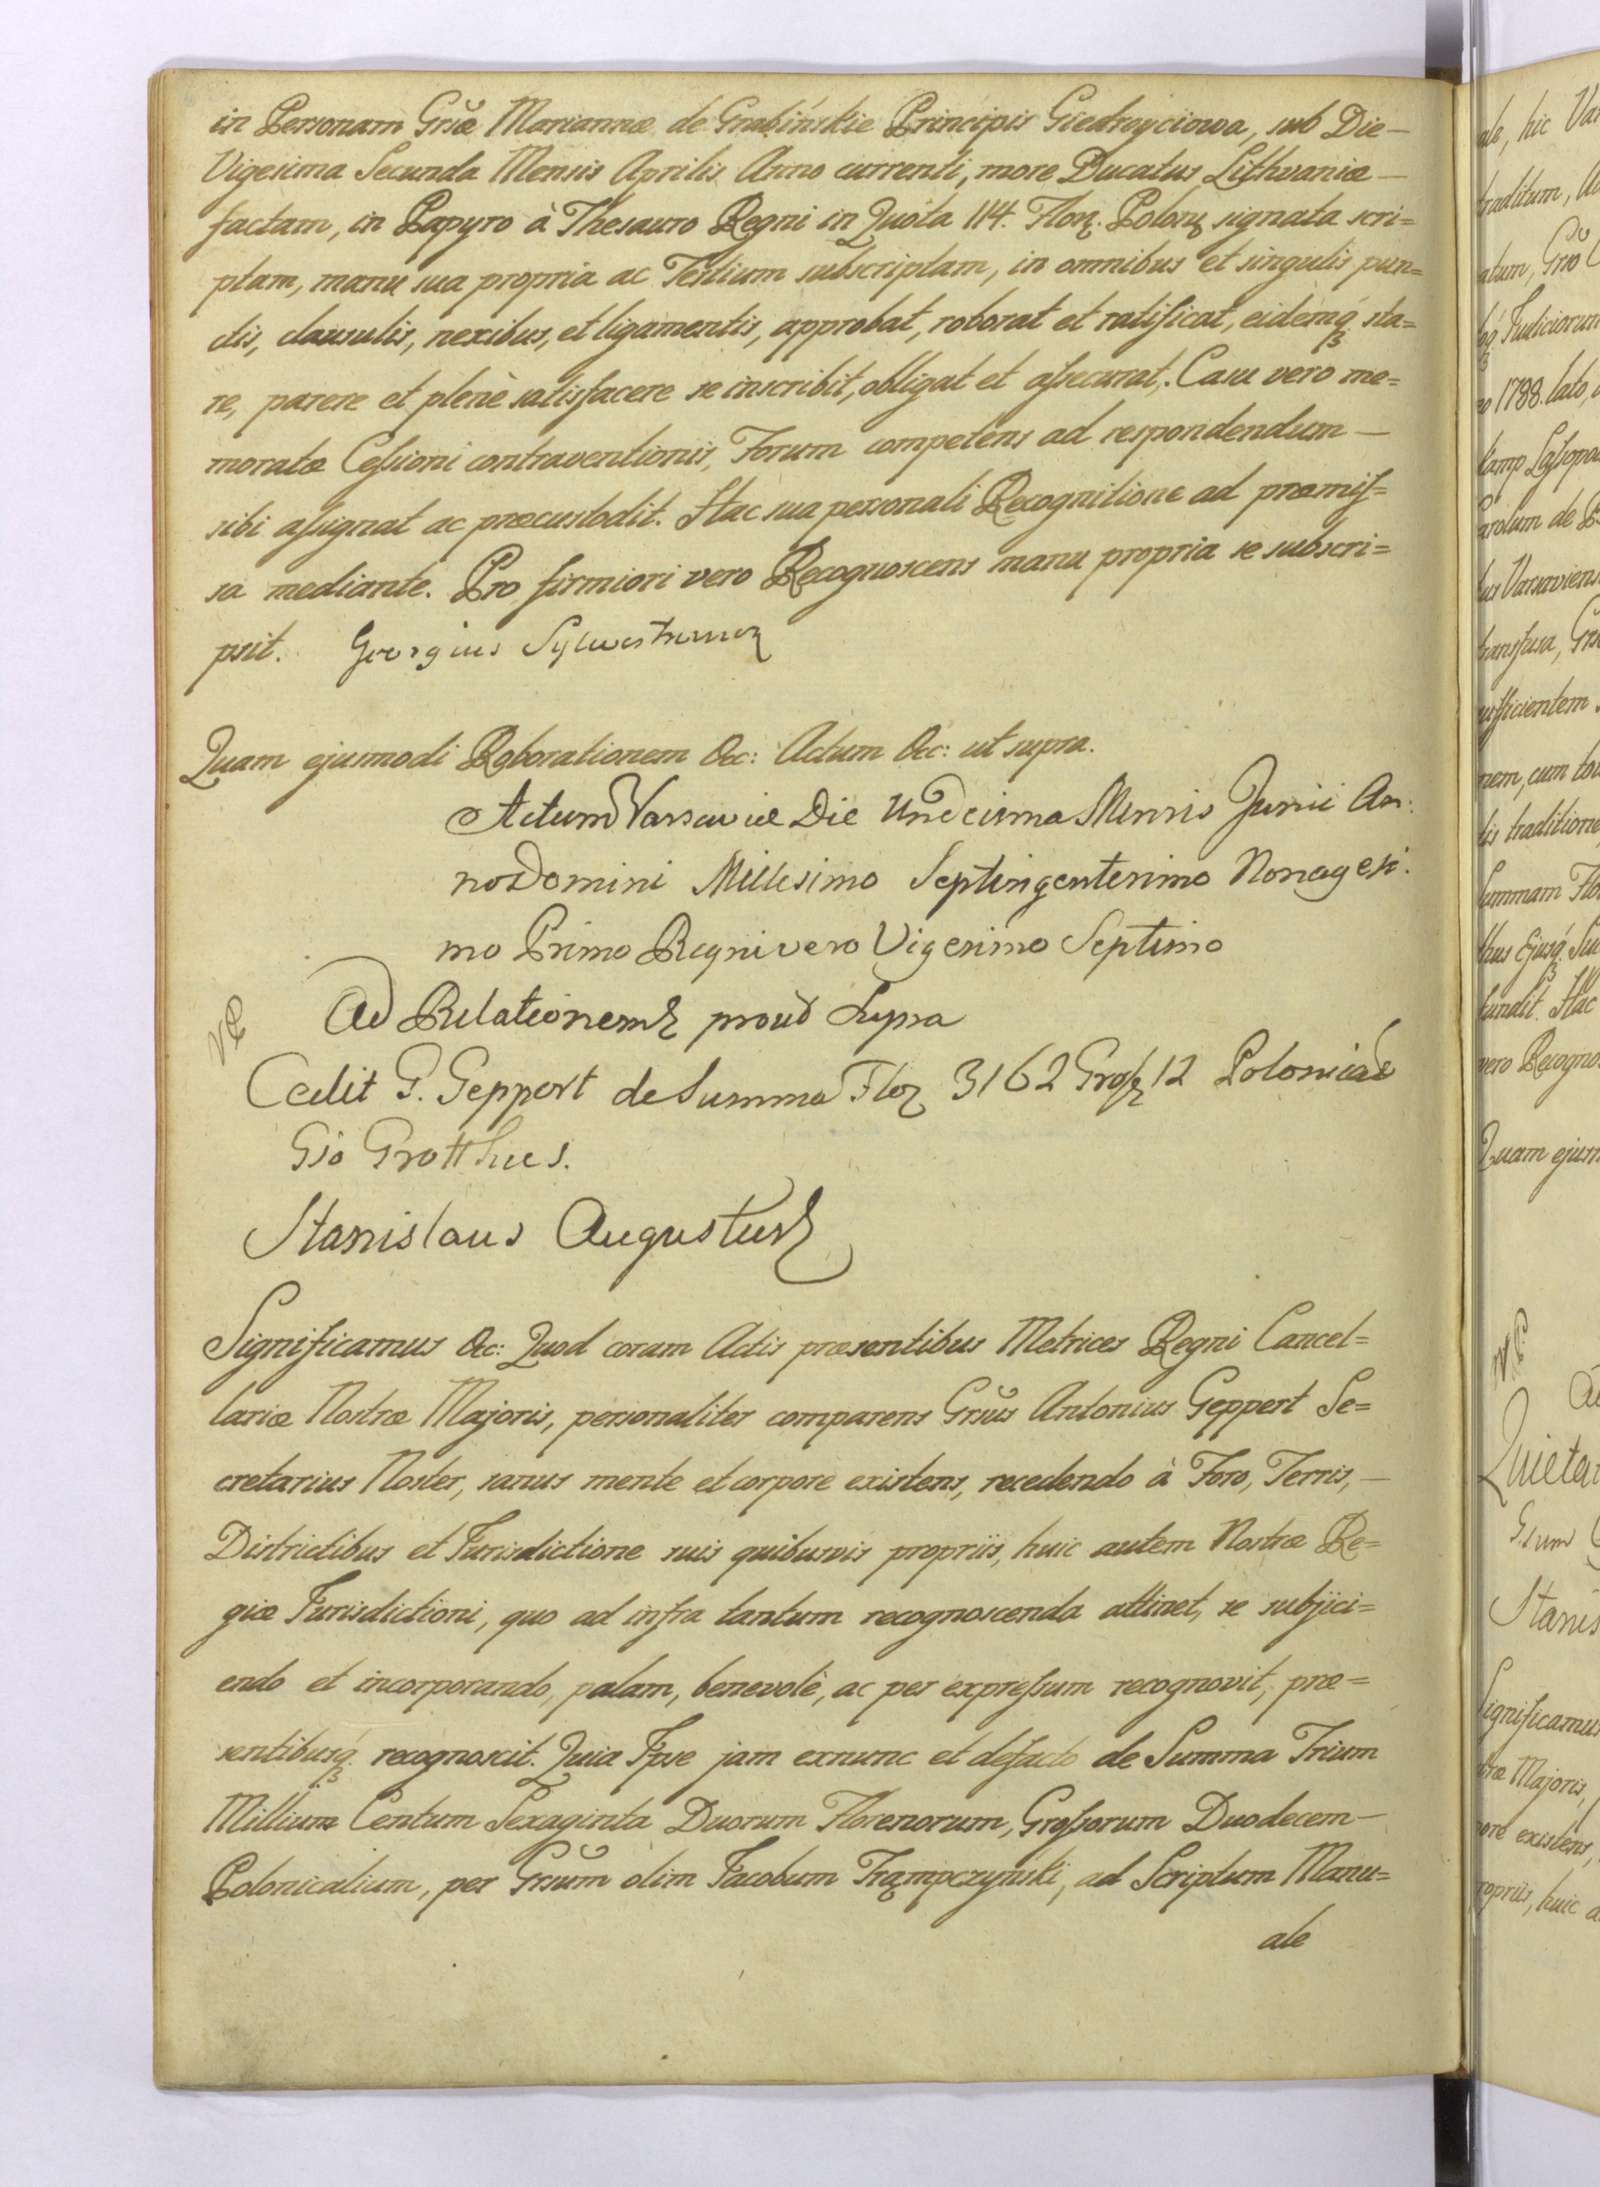 in Personam Gr̃sæ Mariannæ de Grabińskie Principis Giedroyciowa, sub Die
Vigesima Secunda Mensis Aprilis Anno currenti, more Ducatus Lithvaniæ
factam, in Papyro à Thesauro Regni in Quota 114. Flor. Polon. signata scri=
ptam, manu sua propria ac Testium subscriptam, in omnibus et singulis pun=
ctis, clausulis, nexibus, et ligamentis, approbat, roborat et ratificat, eidemq́ sta=
re, parere et plenè satisfacere se inscribit, obligat et assecurat. Casu vero me=
moratæ Cessioni contraventionis, Forum competens ad respondendum
sibi assignat ac præcustodit. Hac sua personali Recognitione ad præmis=
sa mediante. Pro firmiori vero Recognoscens manu propria se subscri=
psit. Georgius
Quam ejusmodi Roborationem &c: Actum &c: ut supra.
Actum Varsaviæ Die Undecima Mensis Junii An:
no Domini Millesimo Septingentesimo Nonagesi:
mo Primo Regni vero Vigesimo Septimo
Ad Relationem proud Supra
Cedit G. Geppert de Summa Flor 3162 Gross 12 Polonicae
Gso Grotthus.
Stanislaus Augustus
Significamus &c: Quod coram Actis præsentibus Metrices Regni Cancel=
lariæ Nostræ Majoris, personaliter comparens Grs̃us Antonius Geppert Se=
cretarius Noster, sanus mente et corpore existens, recedendo à Foro, Terris,
Districtibus et Jurisdictione suis quibusvis propriis, huic autem Nostræ Re=
giæ Jurisdictioni, quo ad infra tantum recognoscenda attinet, se subjici=
endo et incorporando, palam, benevolè, ac per expressum recognovit, præ=
sentibusq́ recognoscit. Quia Ipse jam exnunc et defacto de Summa Trium
Millium Centum Sexaginta Duorum Florenorum, Grossorum Duodecem
Polonicalium, per Grs̃um olim Jacobum Trąmpczyński, ad Scriptum Manu=
ale